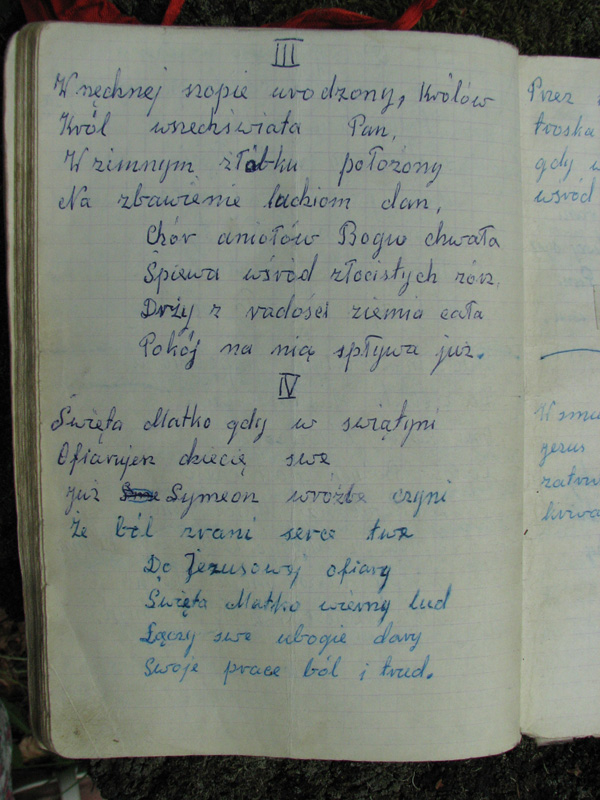 III
W nędznej szopie urodzony, Królów
Król wszechświata Pan,
W zimnym żłóbku położony
Na zbawienie ludziom dan,
Chór aniołów Bogu chwała
Śpiewa wśród złocistych zórz.
Drży z radości ziemia cała
Pokój na nią spływa już.
IV
Święta Matko gdy w swiątyni
Ofiarujesz dziecię swe
już Symeon wróżbę czyni
że ból zrani serce twe
Do Jezusowej ofiary
Święta Matko wierny lud
Łączy swe ubogie dary
Swoje prace ból i trud.
Przez
troska
gdy w
wśród
W smu
jezus